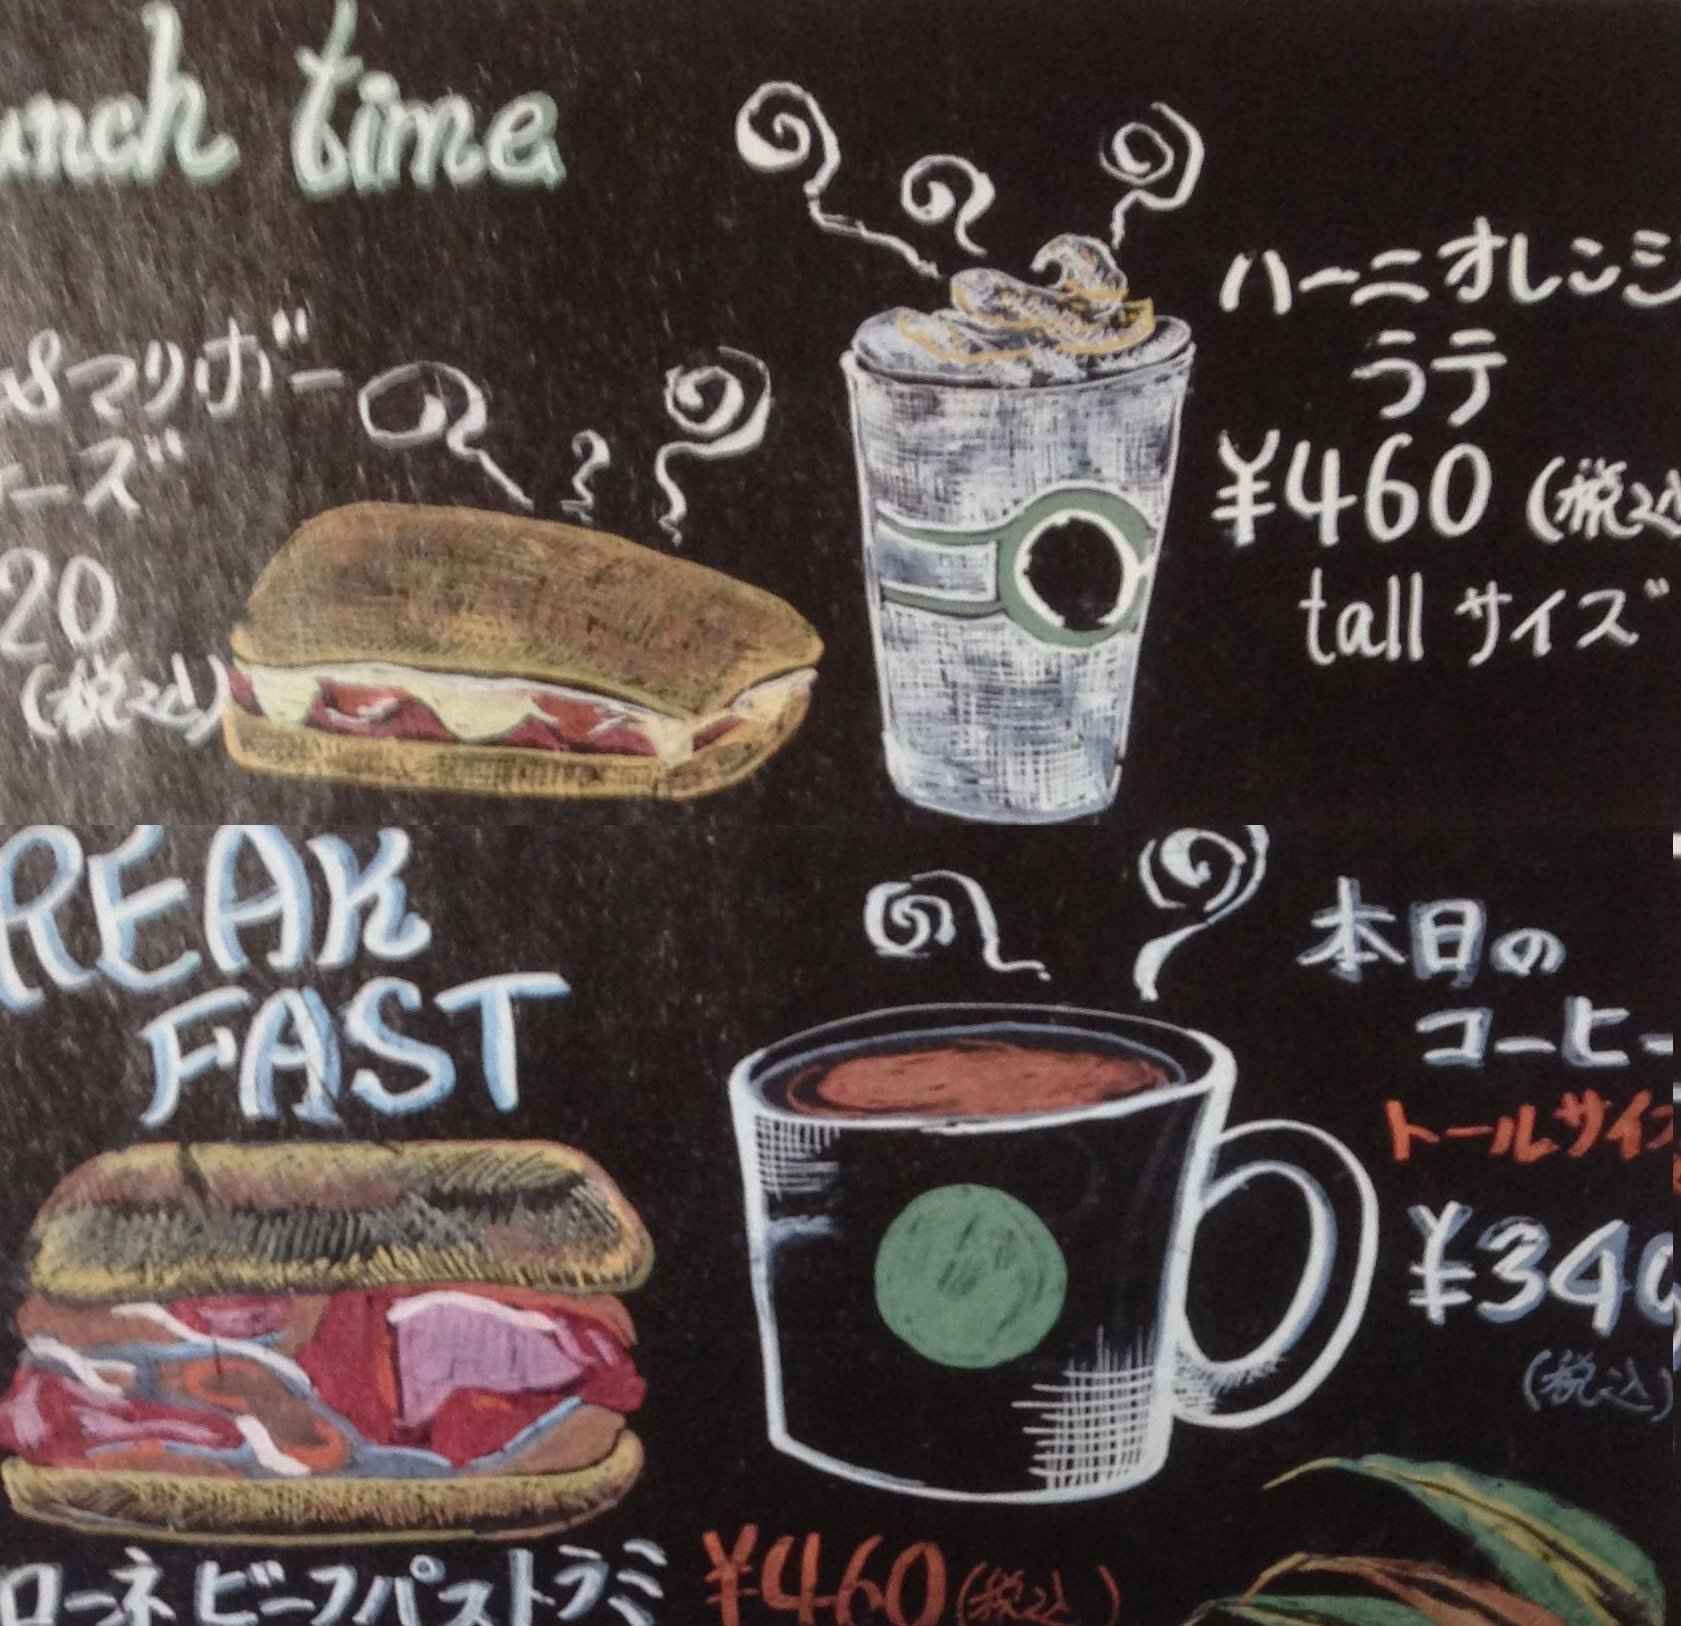 unch time
&マリボー
ーズ
20
(税込)
ハーニオレンジ
ラテ
¥460 (税込
tall サイズ
REAK
FAST
本日の
コーヒー
トールサイズ
¥340
(税込)
ローネ ビーフパストラミ ¥460 (税込)